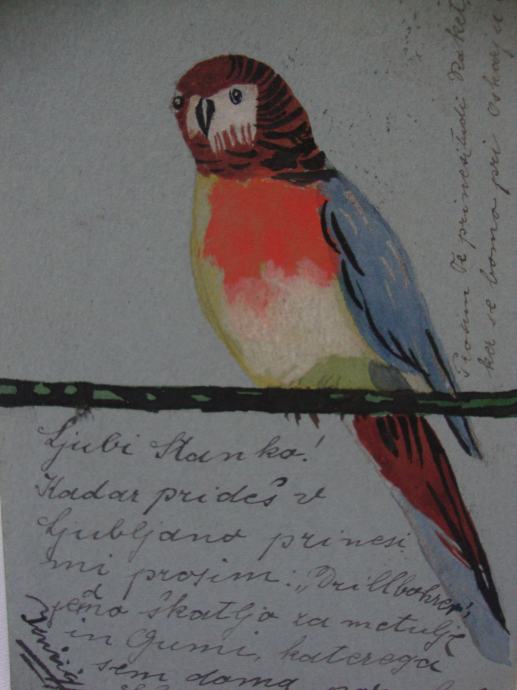 Ljubi Stanko!
Kadar prideš v
Ljubljano prinesi
mi prosim: „Drillbohrer",
jedno škatljo za metulje
in Gumi, katerega
sem doma
Prosim Te prinesi tudi
ka se bomo pri